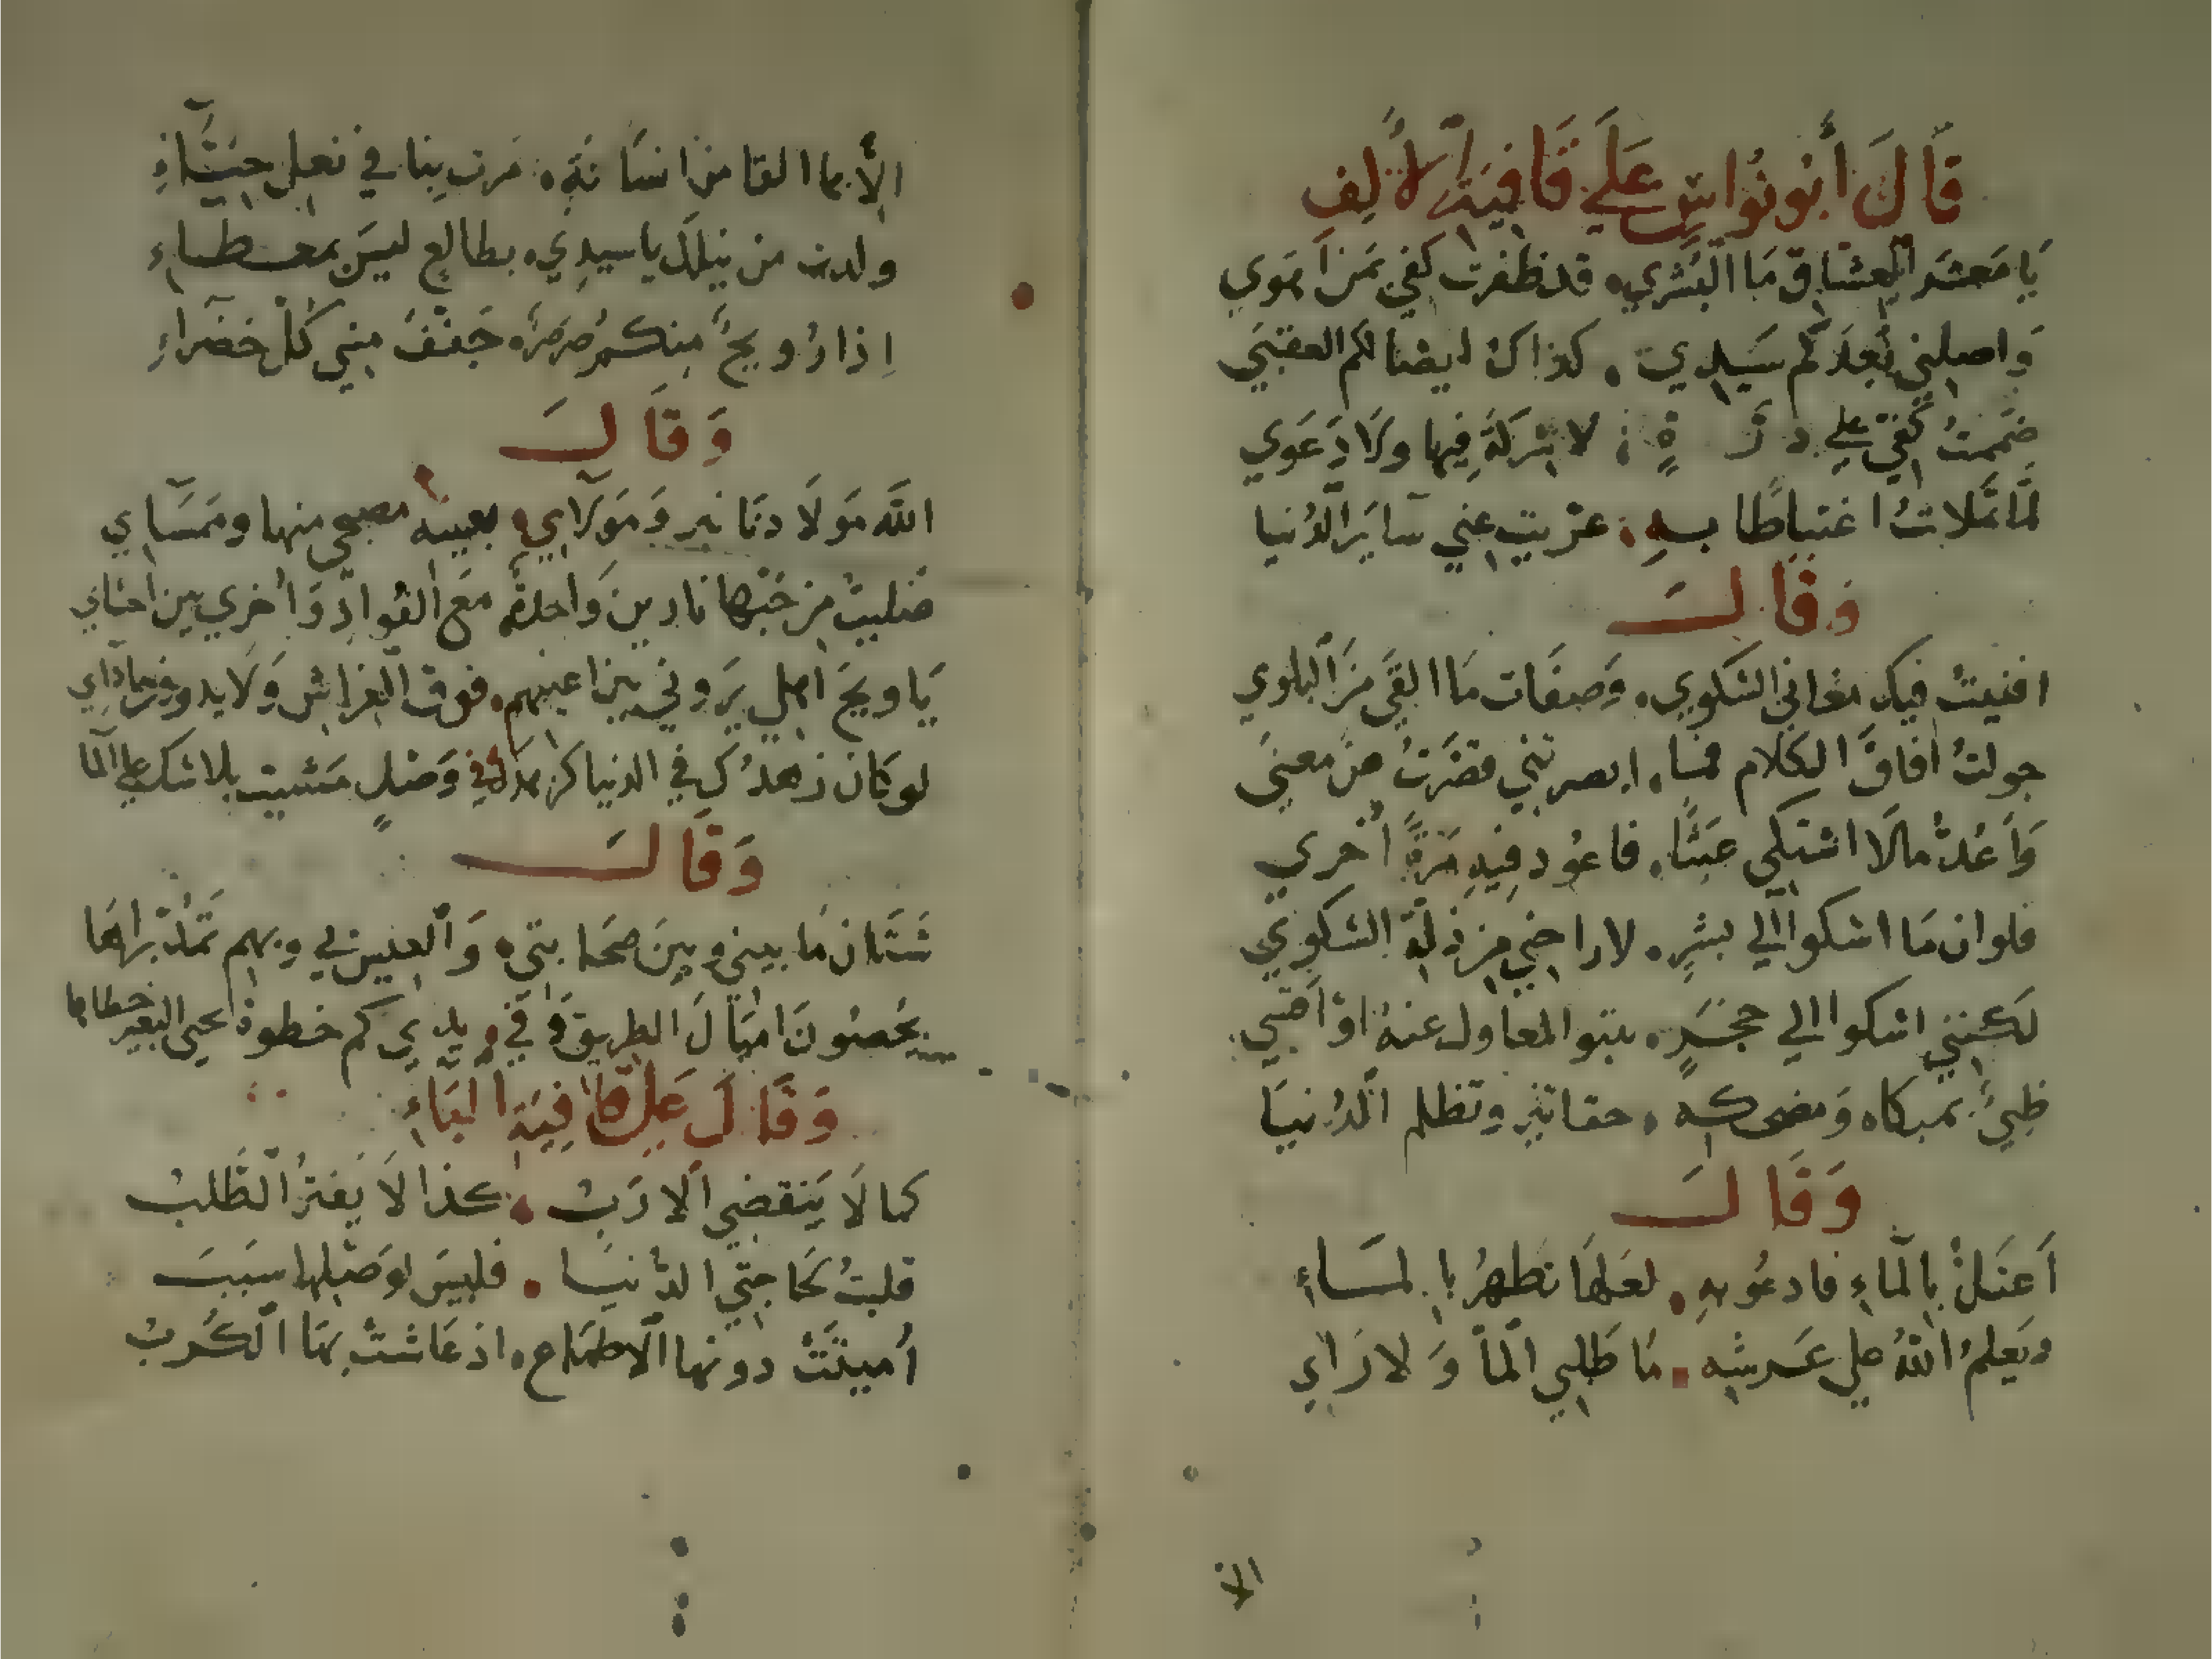 قَالَ أَبُو نُوَاسٍ عَلَي قَافِيَةِ الأَلِفِ
يَا مَعشَر العشاق مَا البُشري قد ظفرت كفي بمَن اهوي
وَاصلني بُعدكم سَيدي كذاك ايضا لكم العقبَي
ضممتُ كفيّ علي درة لا شركةَ فيها ولا دَعوي
لمّا تملاتُ اغتباطًا به عزيت عني سايرَ الدُنيا
وَقَالَ
افنيتُ فيك معاني الشكوي وَصفَات مَا القَي مَن البلوي
جولتُ افاقَ الكلام فما ابصرتني قصَّرتُ عن معنَي
وَاَعُدّ مالا اشتكي عبثًا فاعُود فيهِ مَرةً اخري
فلوان مَا اشكوا الي بشرٍ لاراحني من ذلة الشكوي
لكنني اشكوا الي حجَرٍ تنبو المعاول عنهُ اوْ اقسي
ظبيٌ بمبكاه وَمضحكه حقا تنير وتظلم الدُنيَا
وَقَالَ
اَعتَلُّ بالمَاءِ فادعُو بهِ لعَلهَا تَطهرُ بالمَاءِ
ويَعلمُ اللهُ علي عَرشه مَا طَلبي الماَ وَلا رَاي
الا
الاَّ بما القا من انسَانَةٍ مَرت بنا في نعل حِنَّآءِ
ولدت من نيلك يا سيدي بطالع ليسَ بمعطاءِ
وَقَالَ
اللَّه مَولَا دنَانير وَمَولَاي بعينه مصبحي منها وممسَاي
صَليتُ من حُبّها نارين وَاحدةً مَعَ الفؤادِ وَاُخري بين احشاي
يَا ويحَ اهلي يَروني بين اعينهم فوق الفراش وَلا يدرون ما دَاي
لو كان زهدُك في الدنيا كزهدك في وَصْلٍ مَشيت بلا شك علي الما
وَقَالَ
شَتَّان مَا بيني وبينَ صَحَابتي وَالعيس لي وبهم تمدّ براهَا
يُحصُونَ اميَالَ الطريق وَفي يدي كم خطوة يحيي البعير خطاها
وَقَالَ عَلي قَافِيَةِ البَاءِ
كما لَا يَنقضي الارَبُ كذا لا يَفترُ الطَّلبُ
قلبتُ لحَاجتي الدُنيَا فليسَ لوَصْلها سَببَ
اُميتَتْ دونها الاطمَاع اذ عَاشتْ بهَا الكُرَبُ